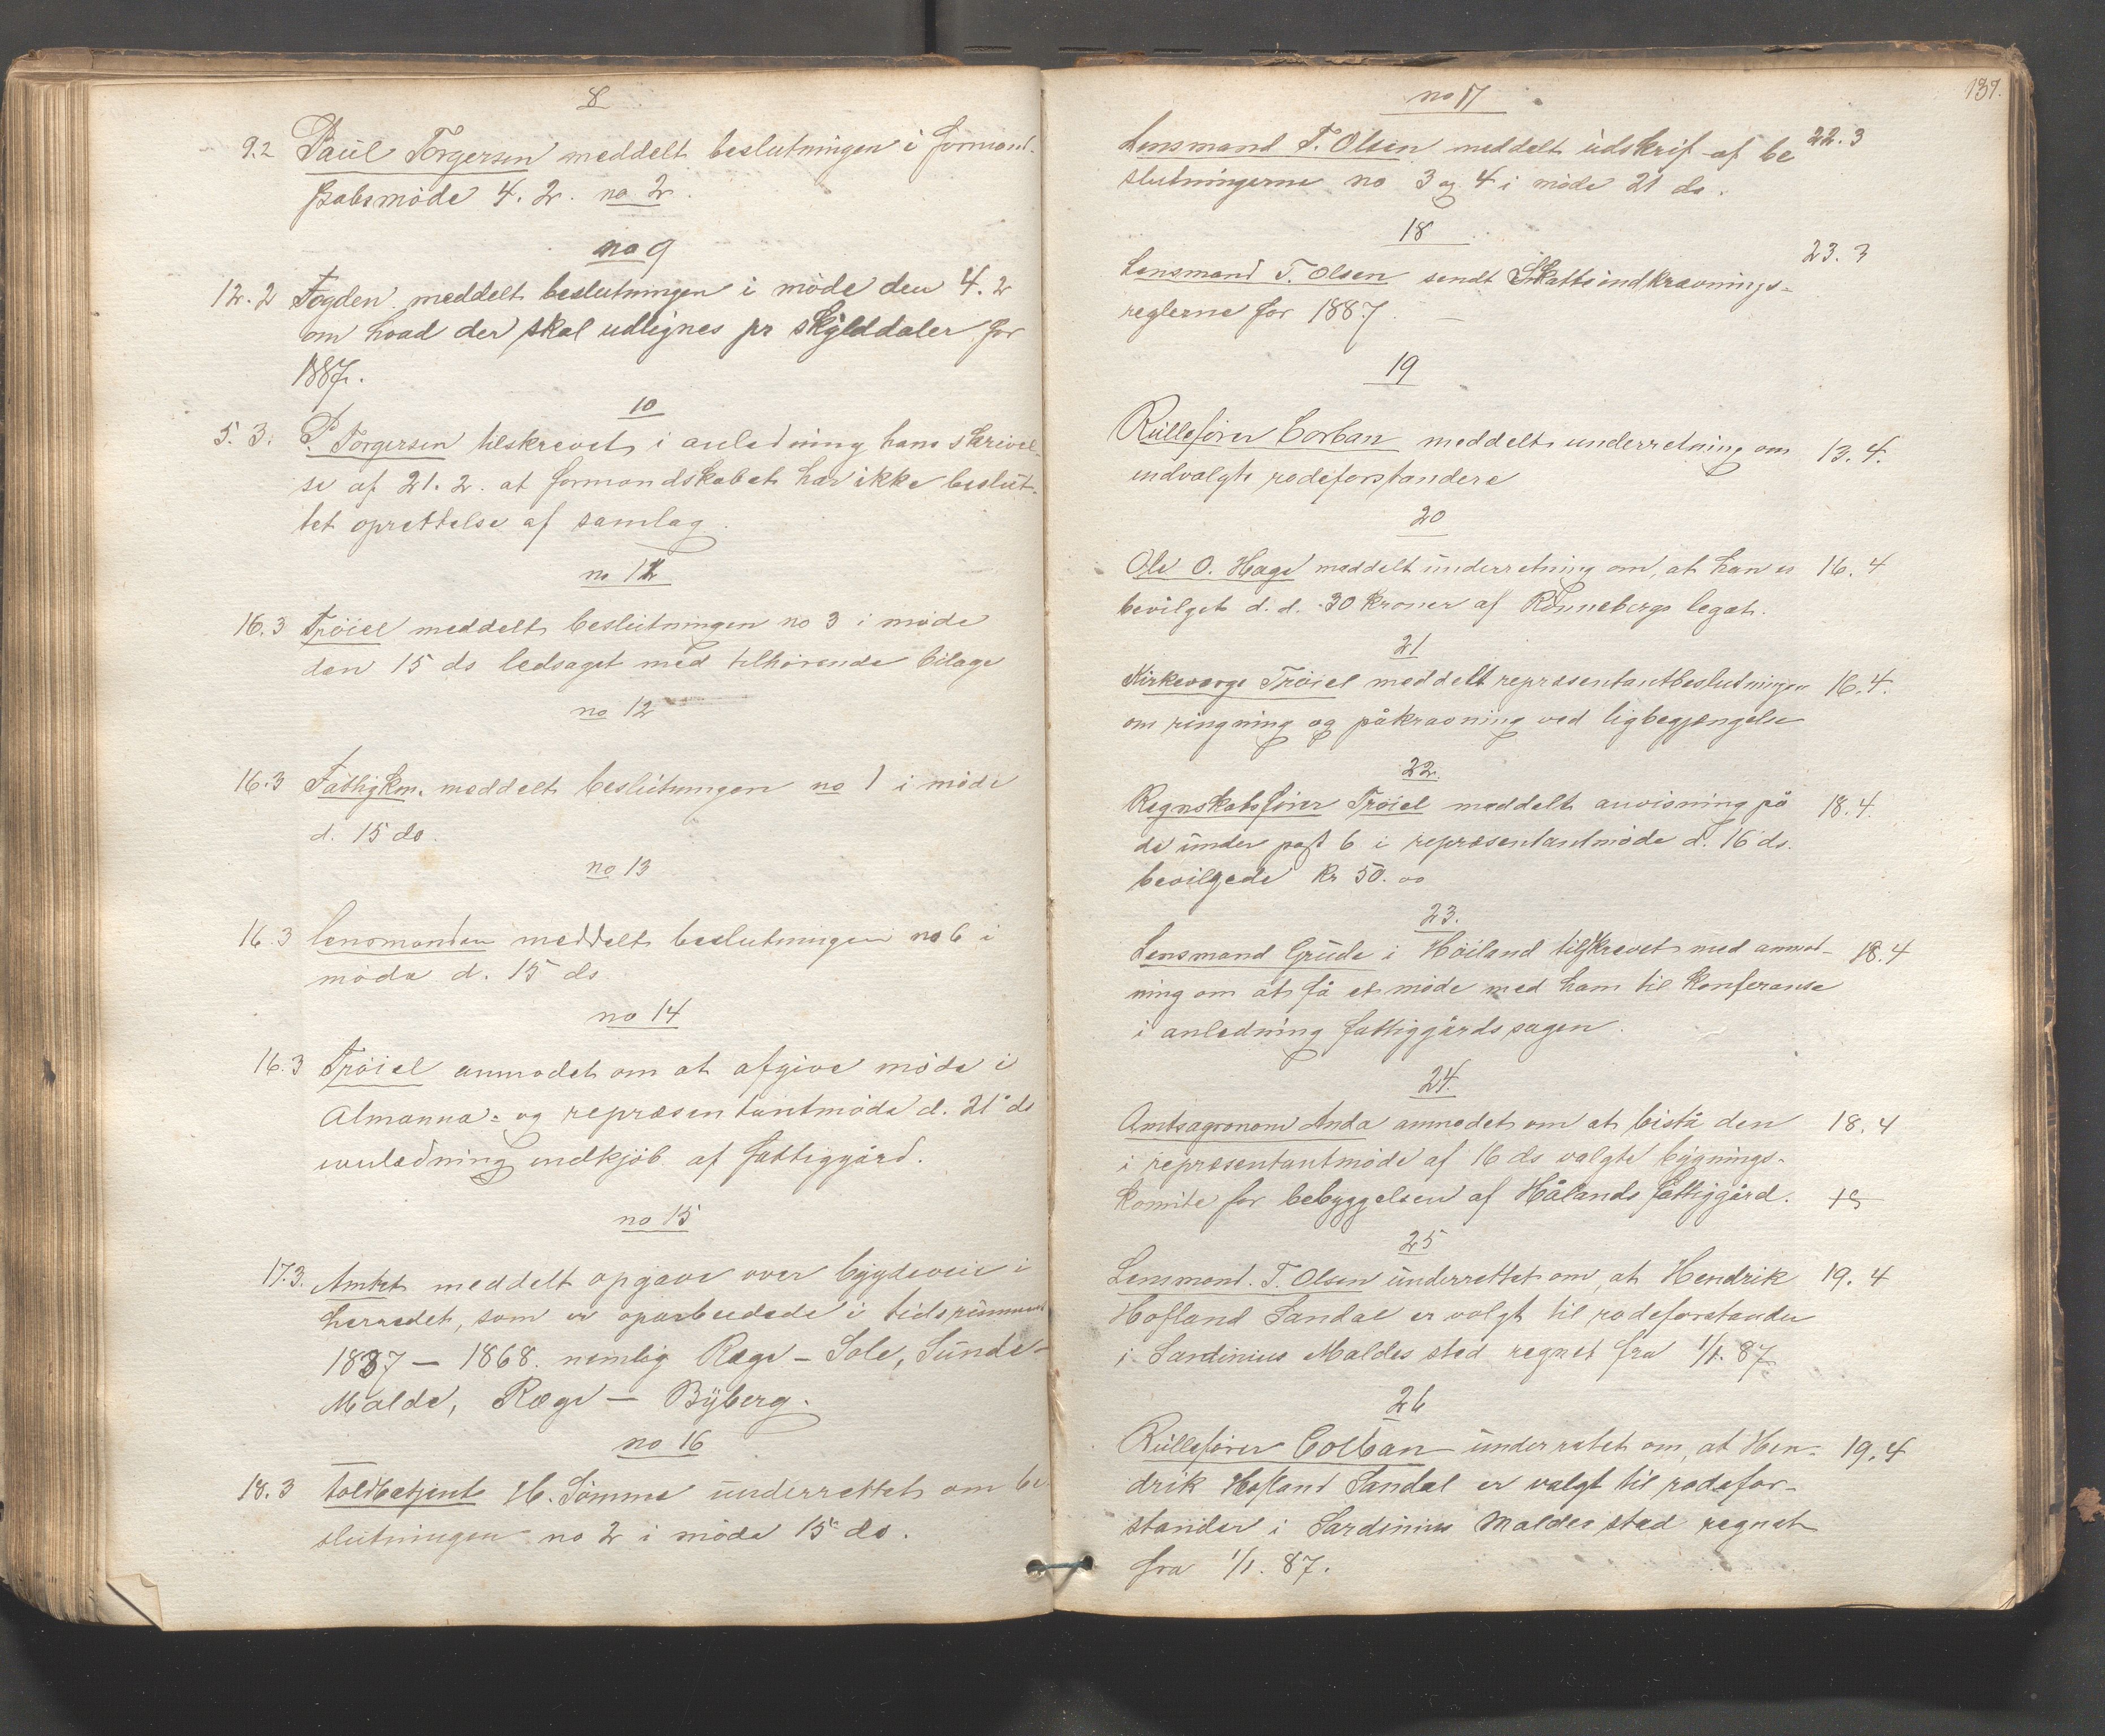 8
9.2 Paul Torgersen meddelt beslutningen i formand-
skabsmöde 4.2. no 2.
no 9
12.2 Fogden meddelt beslutningen i möde den 4.2
om hvad der skal udlignes pr skylddaler for
1887.
10
5.3. P. Torgersen tilskrevet i anledning hans skrivel-
se af 21.2. at formandskabet har ikke beslut-
tet oprettelse af samlag.
no 11
16.3 Tröiel meddelt beslutningen no 3 i möde
den 15 ds ledsaget med tilhörende bilage
no 12
16.3 Fattigkm. meddelt beslutningen no 1 i möde
d. 15 ds.
no 13
16.3 lensmanden meddelt beslutningen no 6 i
möde d. 15 ds
no 14
16.3 Tröiel anmodet om at afgive möde i
Almanna- og repræsentantmöde d. 21 ds
i anledning indkjöb af fattiggård.
no 15
17.3. Amtet meddelt opgave over bygdeveie i
herredet, som er oparbeidede i tidsrummet
1837 — 1868. nemlig Ræge – Sole, Sunde-
Malde, Ræge — Byberg.
no 16
18.3 toldbetjent H. Sömme underrettet om be
slutningen no 2 i möde 15 ds.
137.
no 17
Lensmand T. Olsen meddelt udskrif af be 22.3
slutningerne no 3 og 4 i möde 21 ds.
18
Lensmand T. Olsen sendt Skatteindkrævnings- 23.3
reglerne for 1887. —
19
Rullefører Corban meddelt underretning om 13.4.
udvalgte rodeforstandere
20
Ole O. Hage meddelt underretning om, at han er 16.4
bevilget d. d. 30 kroner af Rönnebergs legat.
21
Kirkeværge Tröiel meddelt repræsentantbeslutningen 16.4.
om ringning og påkrævning ved ligbegjængelse
22.
Regnskabsfører Tröiel meddelt anvisning på 18.4.
de under post 6 i repræsentantmöde d. 16 ds.
bevilgede kr 50.00
23.
Lensmand Grude i Höiland tilskrevet med anmod- 18.4
ning om at få et möde med ham til konferanse
i anledning fattiggårdssagen.
24.
Amtsagronom Anda anmodet om at bistå den 18.4
i repræsentantmöde af 16 ds valgte bygnings-
komite for bebyggelsen af Hålands fattiggård. 18
25
Lensmand. T. Olsen underrettet om, at Hendrik 19.4
Hofland Sandal er valgt til rodeforstander
i Sardinius Maldes sted regnet fra 1/1. 87
26
Rullefører Colban underrettet om, at Hen- 19.4
drik Hofland Sandal er valgt til rodefor-
stander i Sardinius Maldes sted regnet
fra 1/1. 87.